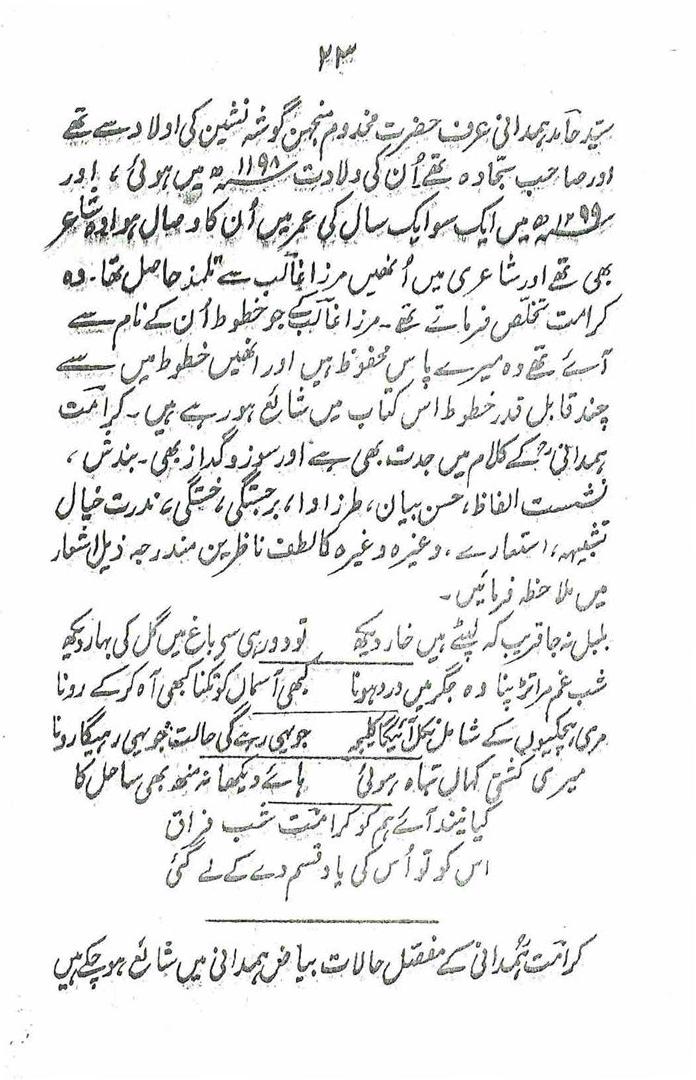 ۲۳
سید حامد ہمدانی عرف حضرت مخدوم منجھن گوشہ نشین کی اولاد سے تھے
اور صاحب سجادہ تھے اُن کی ولادت ۱۱۹۸ھ میں ہوئی، اور
۱۲۹۹ھ میں ایک سو ایک سال کی عمر میں اُن کا وصال ہوا وہ شاعر
بھی تھے اور شاعری میں اُنھیں مرزا غالب سے تلمذ حاصل تھا۔ وہ
کرامت تخلّص فرماتے تھے۔ مرزا غالب کے جو خطوط اُن کے نام سے
آئے تھے وہ میرے پاس محفوظ ہیں اور انھیں خطوط میں سے
چند قابل قدر خطوط اس کتاب میں شائع ہو رہے ہیں۔ کرامت
ہمدانیؒ کے کلام میں جدت بھی ہے اور سوز و گداز بھی۔ بندش،
نشست الفاظ، حسن بیان، طرز ادا، برجستگی، خستگی، ندرت خیال
تشبیہہ، استعارے، وغیرہ وغیرہ کا لطف ناظرین مندرجہ ذیل اشعار
میں ملاحظہ فرمائیں۔
بلبل نہ جا قریب کہ لپٹے ہیں خار دیکھ تو دور ہی سے باغ میں گل کی بہار دیکھ
شب غم مرا تڑپنا وہ جگر میں درد ہونا کبھی آسماں کو تکنا کبھی آہ کر کے رونا
مری ہچکیوں کے شامل نکل آئیگا کلیجہ جو یہی رہے گی حالت جو یہی رہیگا رونا
میری کشتی کہاں تباہ ہوئی ہائے دیکھا نہ منھ بھی ساحل کا
کیا نیند آئے ہم کو کرامت شب فراق
اس کو تو اُس کی یاد قسم دے کے لے گئی
کرامت ہمدانی کے مفصل حالات بیاض ہمدانی میں شائع ہو چکے ہیں